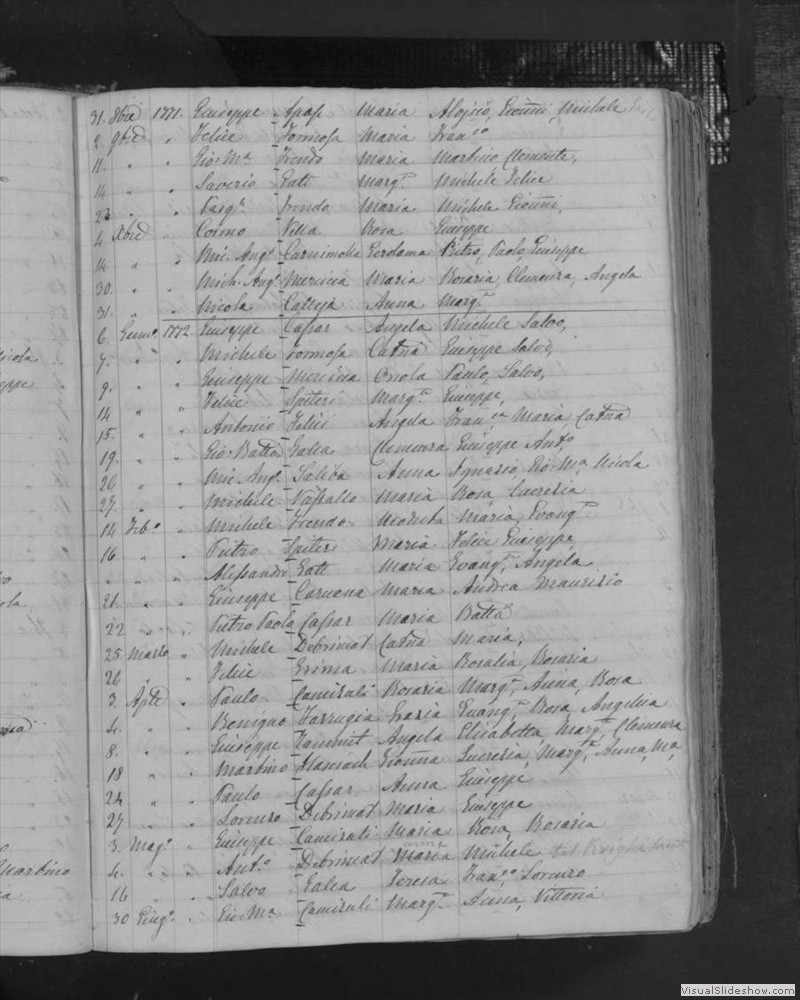 31. 8bre 1771. Giuseppe Apap Maria Aloisio, Gionni, Michele
2. 9bre " Felice Formosa Maria Fran.co
11. " " Gio: M.a Trendo Maria Martino Clemente,
14 " " Saverio Gatt Marg.ta Michele Felice
23 " " Pasq.e Trendo Maria Michele Gionni,
4 Xbre " Cosmo Vella Rosa Giuseppe
14 " " Mic: Ang.o Pietro, Paolo Giuseppe
30. " " Mich. Ang.o Maria Rosaria, Clemenza, Angela
31. " " Nicola Calleja Anna Marg.ta
6. Genn.o 1772 Giuseppe Caspar Angela Michele Salvo,
7. " " Michele Formosa Cat.na Giuseppe Salvo,
9. " " Giuseppe Orsola Paulo, Salvo,
14 " " Felice Spiteri Marg.ta Giuseppe,
15. " " Antonio Felici Angela Fran.ca Maria, Cat.na
19. " " Gio: Batta Galea Clemenza Giuseppe Ant.o
26 " " Mic. Ang.o Saliba Anna Ignazio, Gio: M.a Nicola
27. " " Michele Vassallo Maria Rosa, Lucrezia
14 Feb.o " Michele Trendo Maria, Evang.ta
16 " " Pietro Spiteri Maria Felice Giuseppe
" " " Alessandro Gatt Maria Evang.ta, Angela
21. " " Giuseppe Caruana Maria Andrea Maurizio
22 " " Pietro Paolo Caspar Maria Batta
25 Marzo " Michele Debrincat Cat.na Maria,
26 " " Felice Grima Maria Rosalia, Rosaria
3. Aple " Paulo Camisuli Rosaria Marg.ta, Anna, Rosa
4. " " Benigno Farrugia Grazia Evang.ta Rosa Angelica
8. " " Giuseppe Zammit Angela Elisabetta, Marg.ta, Clemenza
18 " " Martino Gionna Lucrezia, Marg.ta, Anna, Ma,
24 " " Paulo Caspar Anna Giuseppe
27 " " Lorenzo Debrincat Maria Giuseppe
3. Mag.o " Giuseppe Camisuli Maria Rosa, Rosaria
4. " " Ant.o Debrincat Maria Michele
16 " " Salvo Galea Teresa Fran.co Lorenzo
30 Giug.o " Gio: M.a Camisuli Marg.ta Anna, Vittoria
VisualSlideshow.com